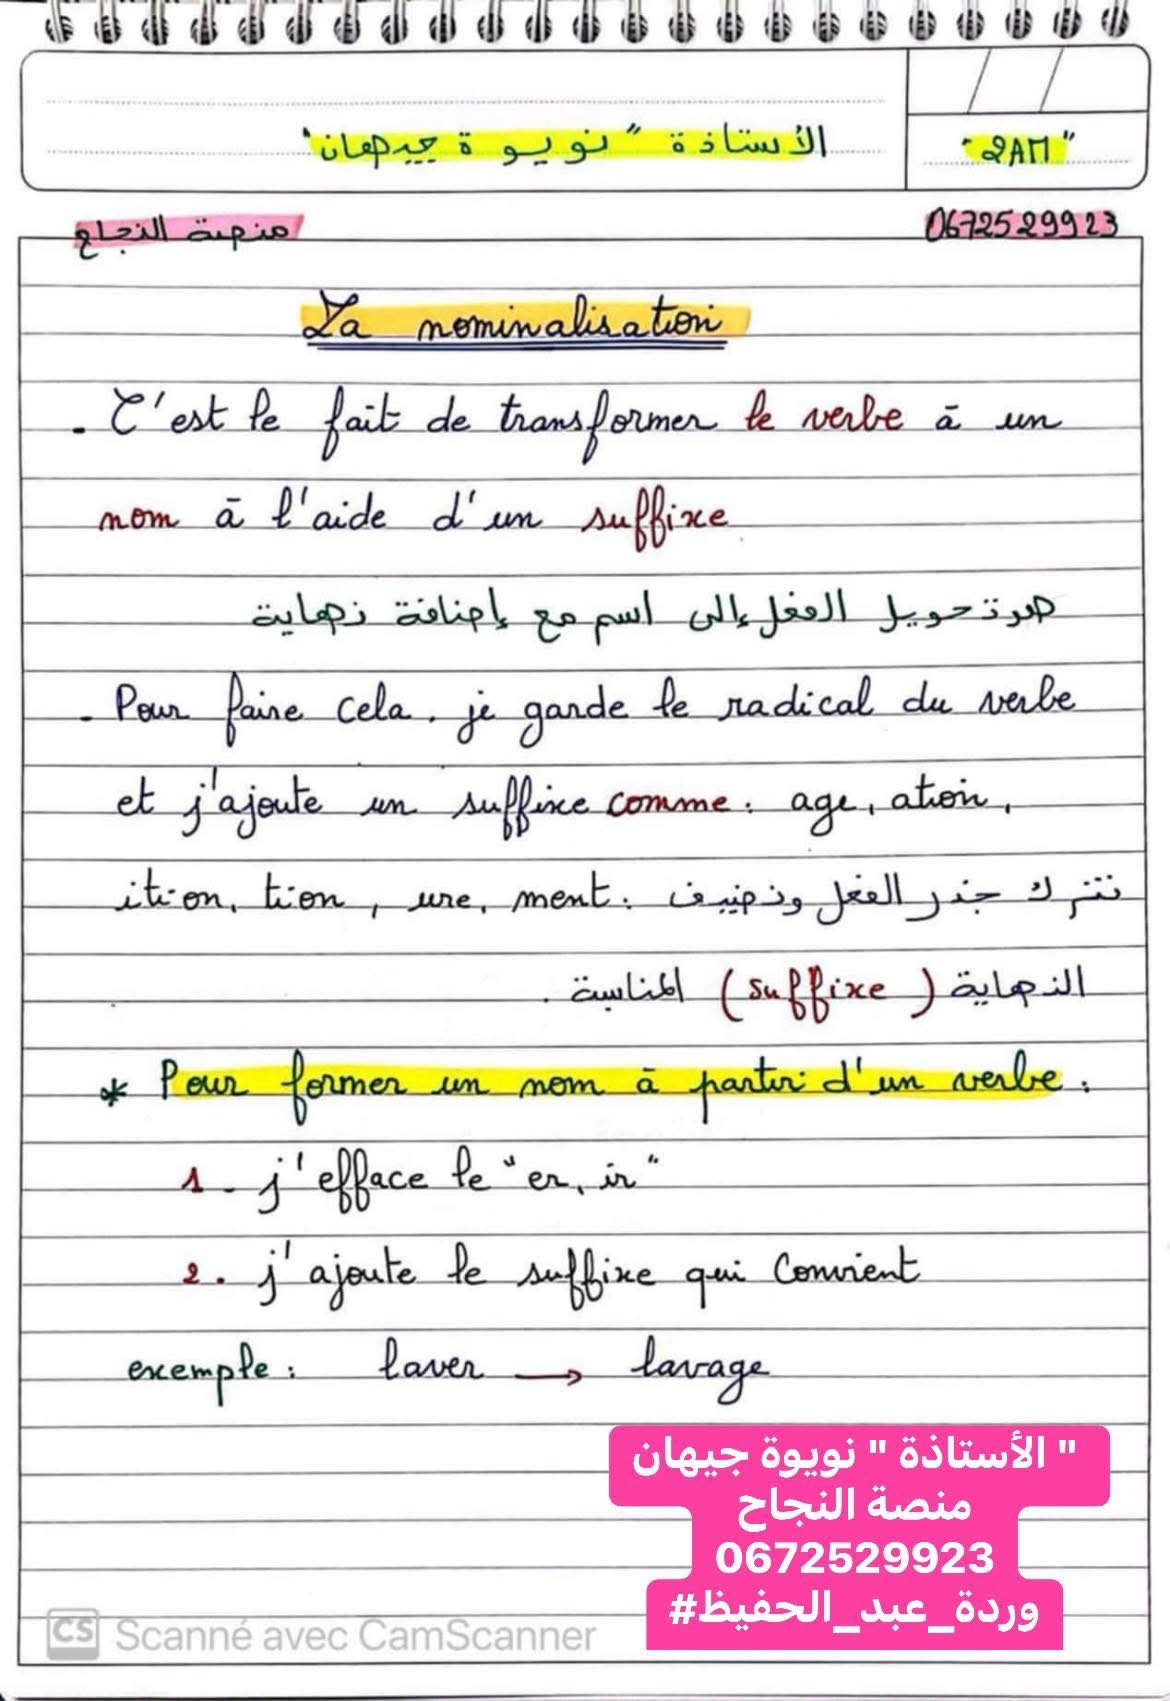 الأستاذة "نويوة جيهان"
"2AM"
منصة النجاح
0672529923
La nominalisation
. C'est le fait de transformer le verbe à un
nom à l'aide d'un suffixe
هو تحويل الفعل إلى اسم مع إضافة نهاية
. Pour faire cela, je garde le radical du verbe
et j'ajoute un suffixe comme : age, ation,
ition, tion, ure, ment. نترك جذر الفعل ونضيف
النهاية (suffixe) المناسبة .
* Pour former un nom à partir d'un verbe :
1 - j'efface le "er, ir"
2 . j'ajoute le suffixe qui Convient
exemple : laver → lavage
" الأستاذة " نويوة جيهان
منصة النجاح
0672529923
#وردة_عبد_الحفيظ
CS Scanné avec CamScanner